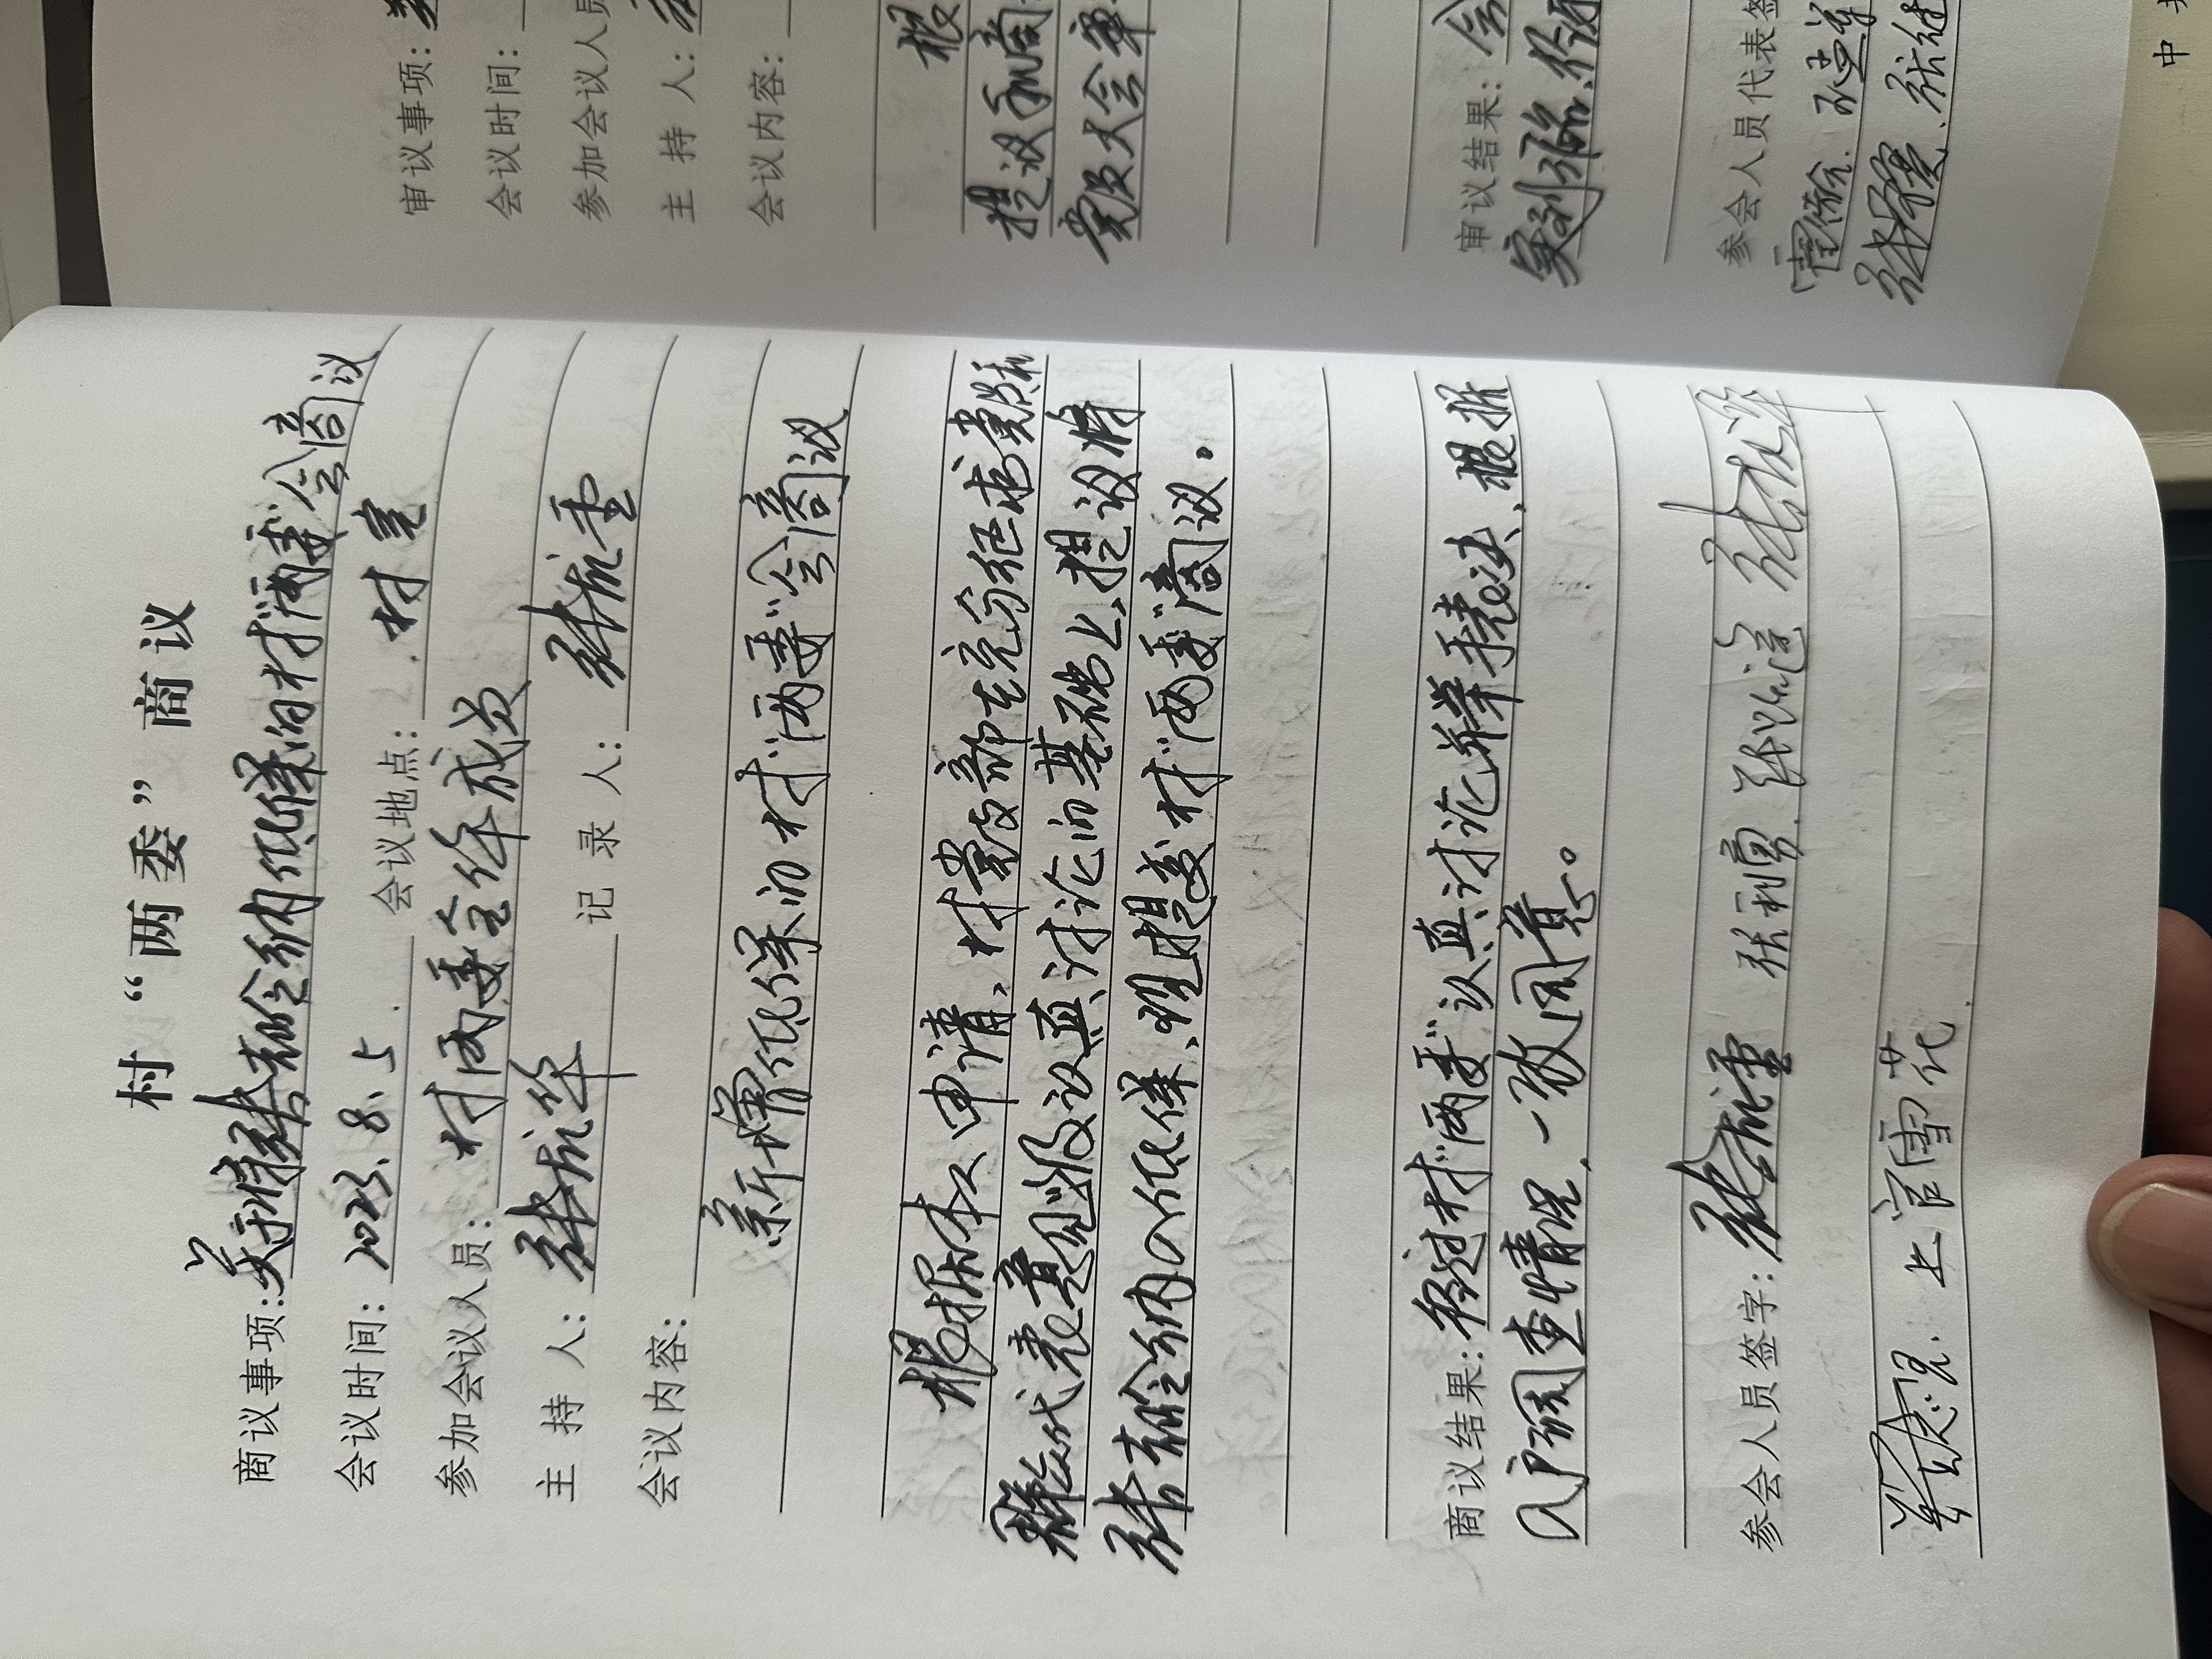 村“两委”商议
商议事项：关于将张 纳低保的村“两委”会商议
会议时间：2023.8.5. 会议地点：村室
参加会议人员：村两委全体成员
主 持 人：张 华 记 录 人：张 雪
会议内容：
新增低保的村“两委”会商议
根据本人申请，村党支部在充分征求党员和
群众代表意见及认真讨论的基础上，提议将
张 纳入低保，现提交村“两委”商议。
商议结果：经过村“两委”认真讨论并举手表决，根据
入户调查情况，一致同意。
参会人员签字：张 雪 张利勇 张
上官雪花
审议事项：
会议时间：
参加会议人员
主 持 人：
会议内容：
根
提议和商
党员大会审
审议结果：会
实到
参会人员代表签
中共